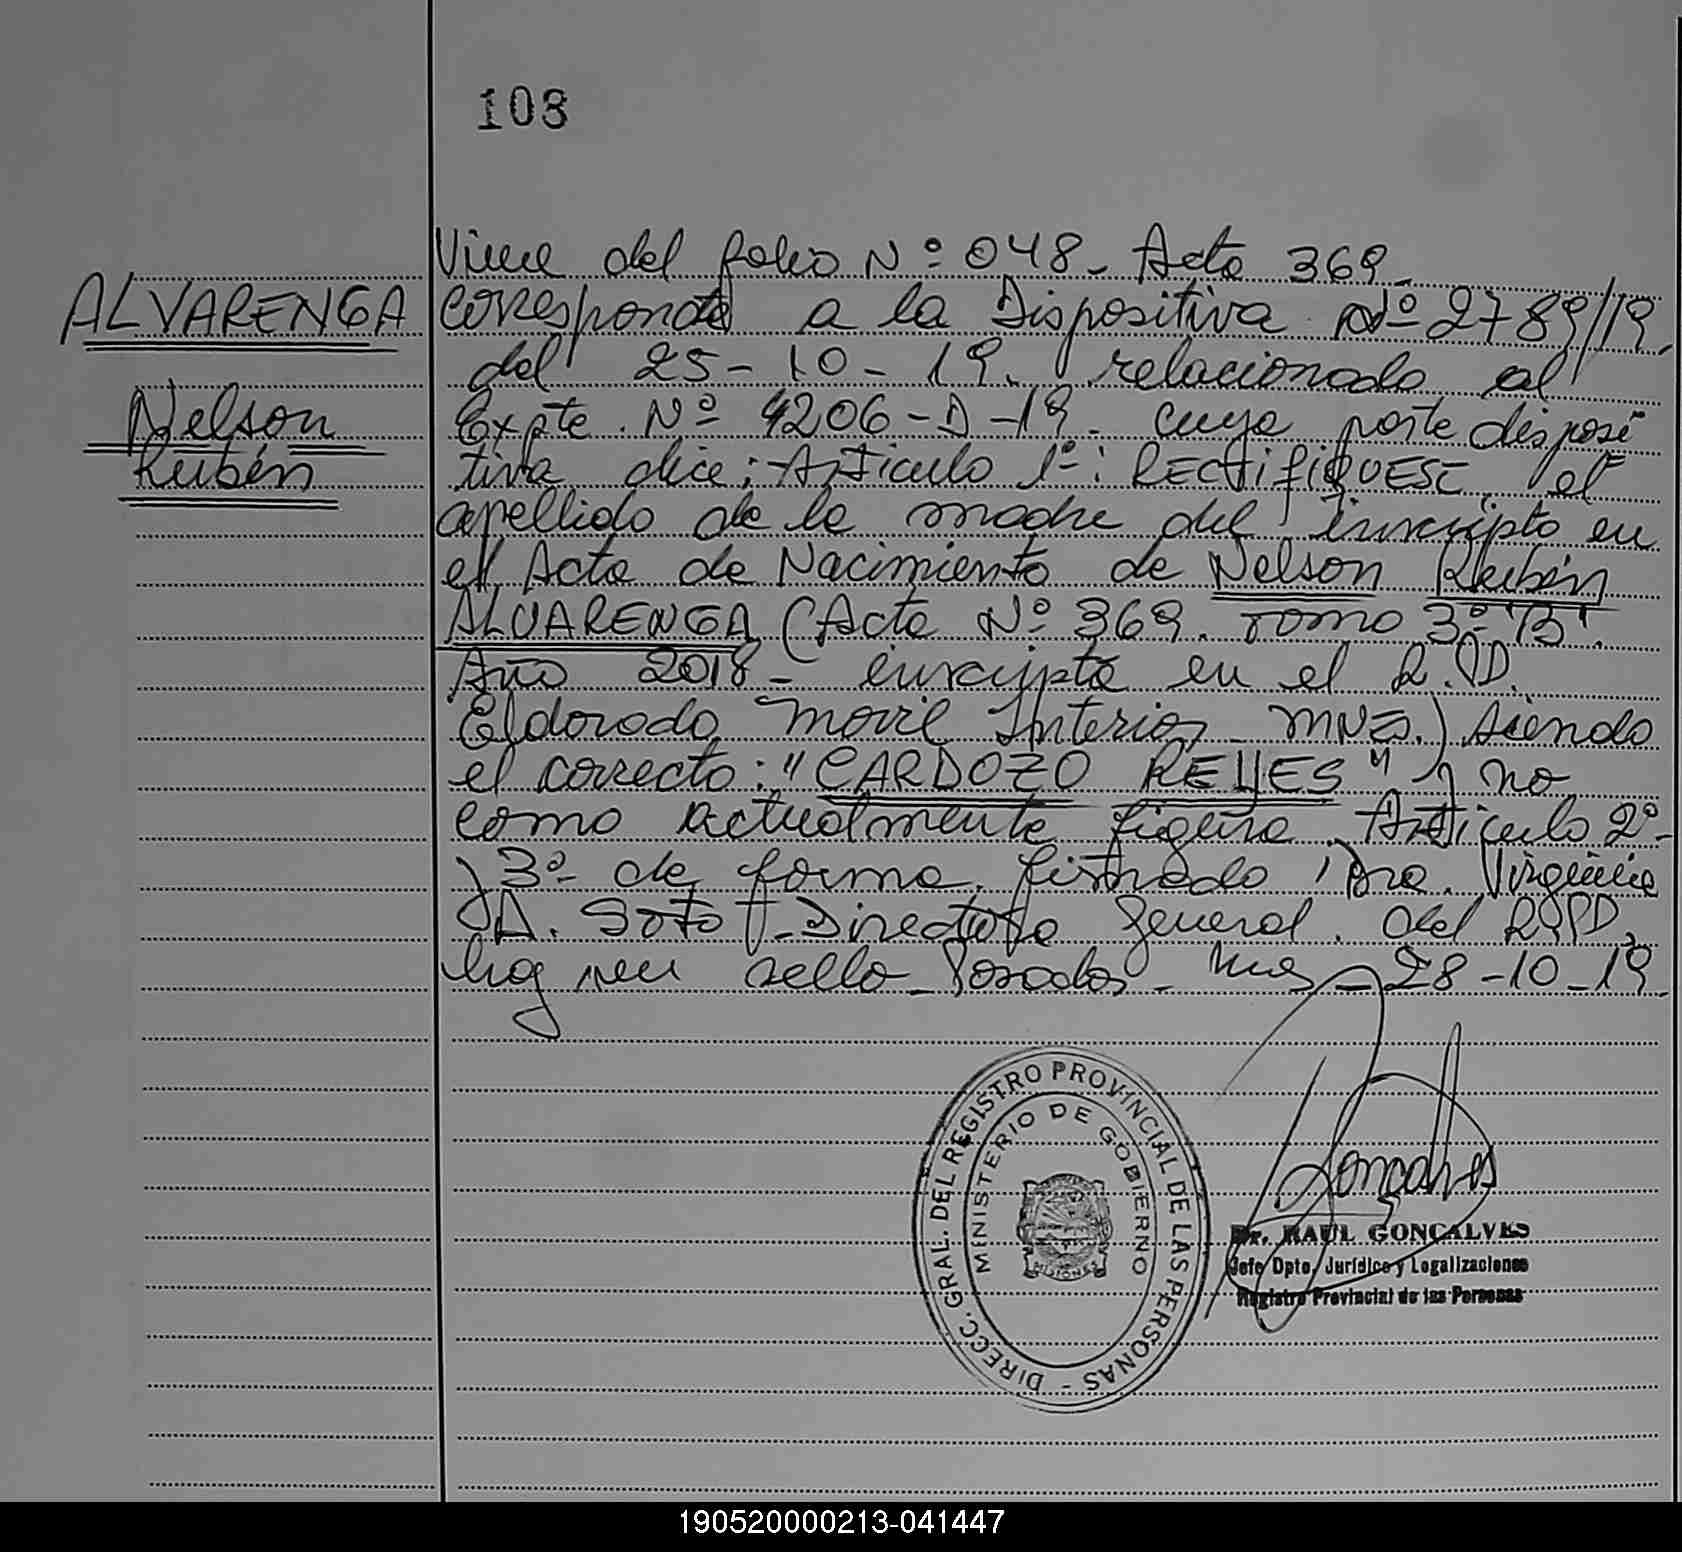 103
ALVARENGA
Nelson
Rubén
Viene del folio Nº 048- Acta 369-
Corresponde a la Dispositiva Nº 2789/19,
del 25-10-19. relacionado al
Expte. Nº 4206-D-19- cuya parte disposi
tiva dice: Artículo 1º: RECTIFIQUESE, el
apellido de la madre del inscripto en
el Acta de Nacimiento de Nelson Rubén
ALVARENGA (Acta Nº 369. Tomo 3º "B".
Año 2018- inscripta en el R.P.
Eldorado Movil Interior MNES.) siendo
el correcto: "CARDOZO REYES" y no
como actualmente figura. Artículo 2º-
y 3º- de forma. firmado Dra. Virginia
A. Soto - Directora General. del
Hay un sello - Posadas - Mnes - 28-10-19.
DIRECC. GRAL. DEL REGISTRO PROVINCIAL DE LAS PERSONAS -
MINISTERIO DE GOBIERNO
MISIONES
Goncalves
Dr. RAUL GONCALVES
Jefe Dpto. Jurídico y Legalizaciones
Registro Provincial de las Personas
190520000213-041447